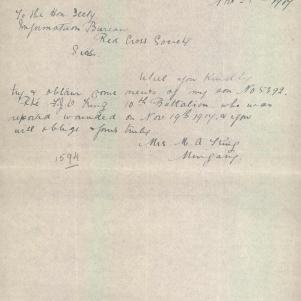 1917
To the Hon Secty
Information Bureau
Red Cross Society
Sir
Will you Kindly
try & obtain some news of my son No 5692.
Pte 10th Battalion who was
reported wounded on Nov 19th 1917 & you
will oblige yours truly
Mrs M. A.
1594